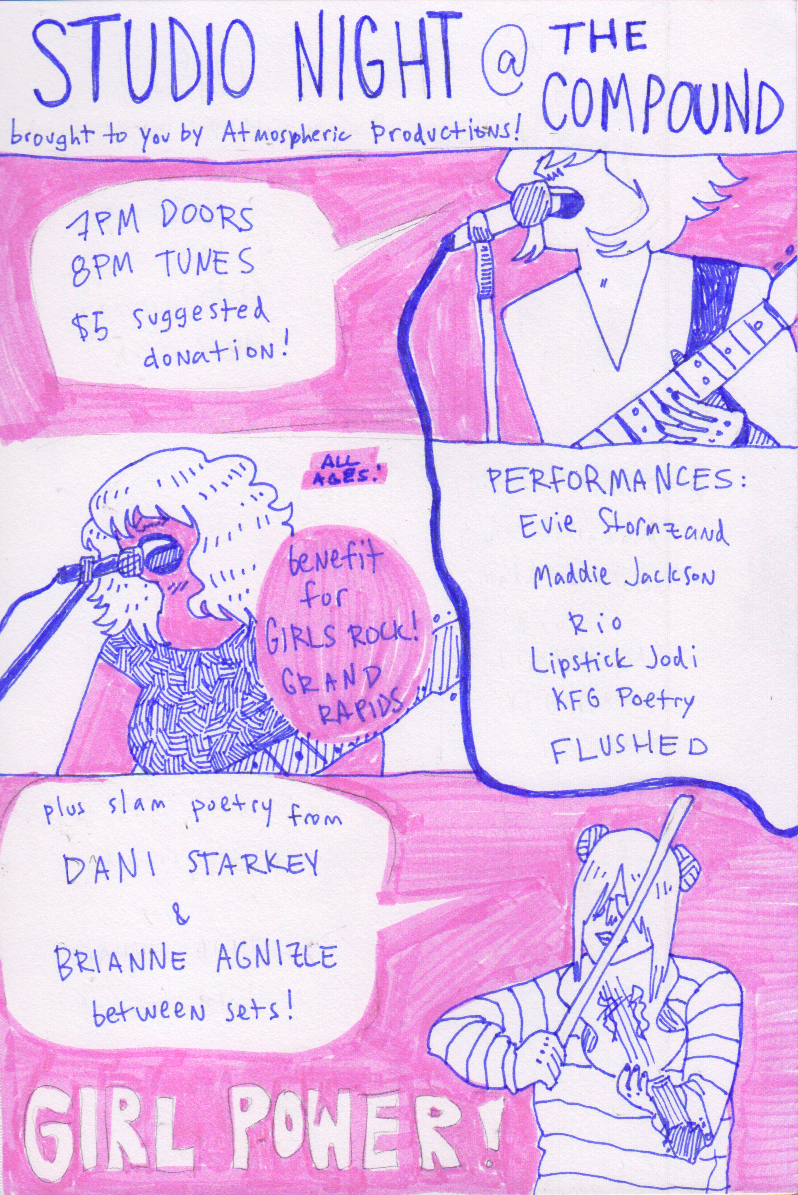 STUDIO NIGHT @ THE COMPOUND
brought to you by Atmospheric Productions!
7PM DOORS
8PM TUNES
$5 suggested
donation!
ALL
AGES!
benefit
for
GIRLS ROCK!
GRAND
RAPIDS
PERFORMANCES:
Evie Stormzand
Maddie Jackson
Rio
Lipstick Jodi
KFG Poetry
FLUSHED
plus slam poetry from
DANI STARKEY
&
BRIANNE AGNIZLE
between sets!
GIRL POWER!